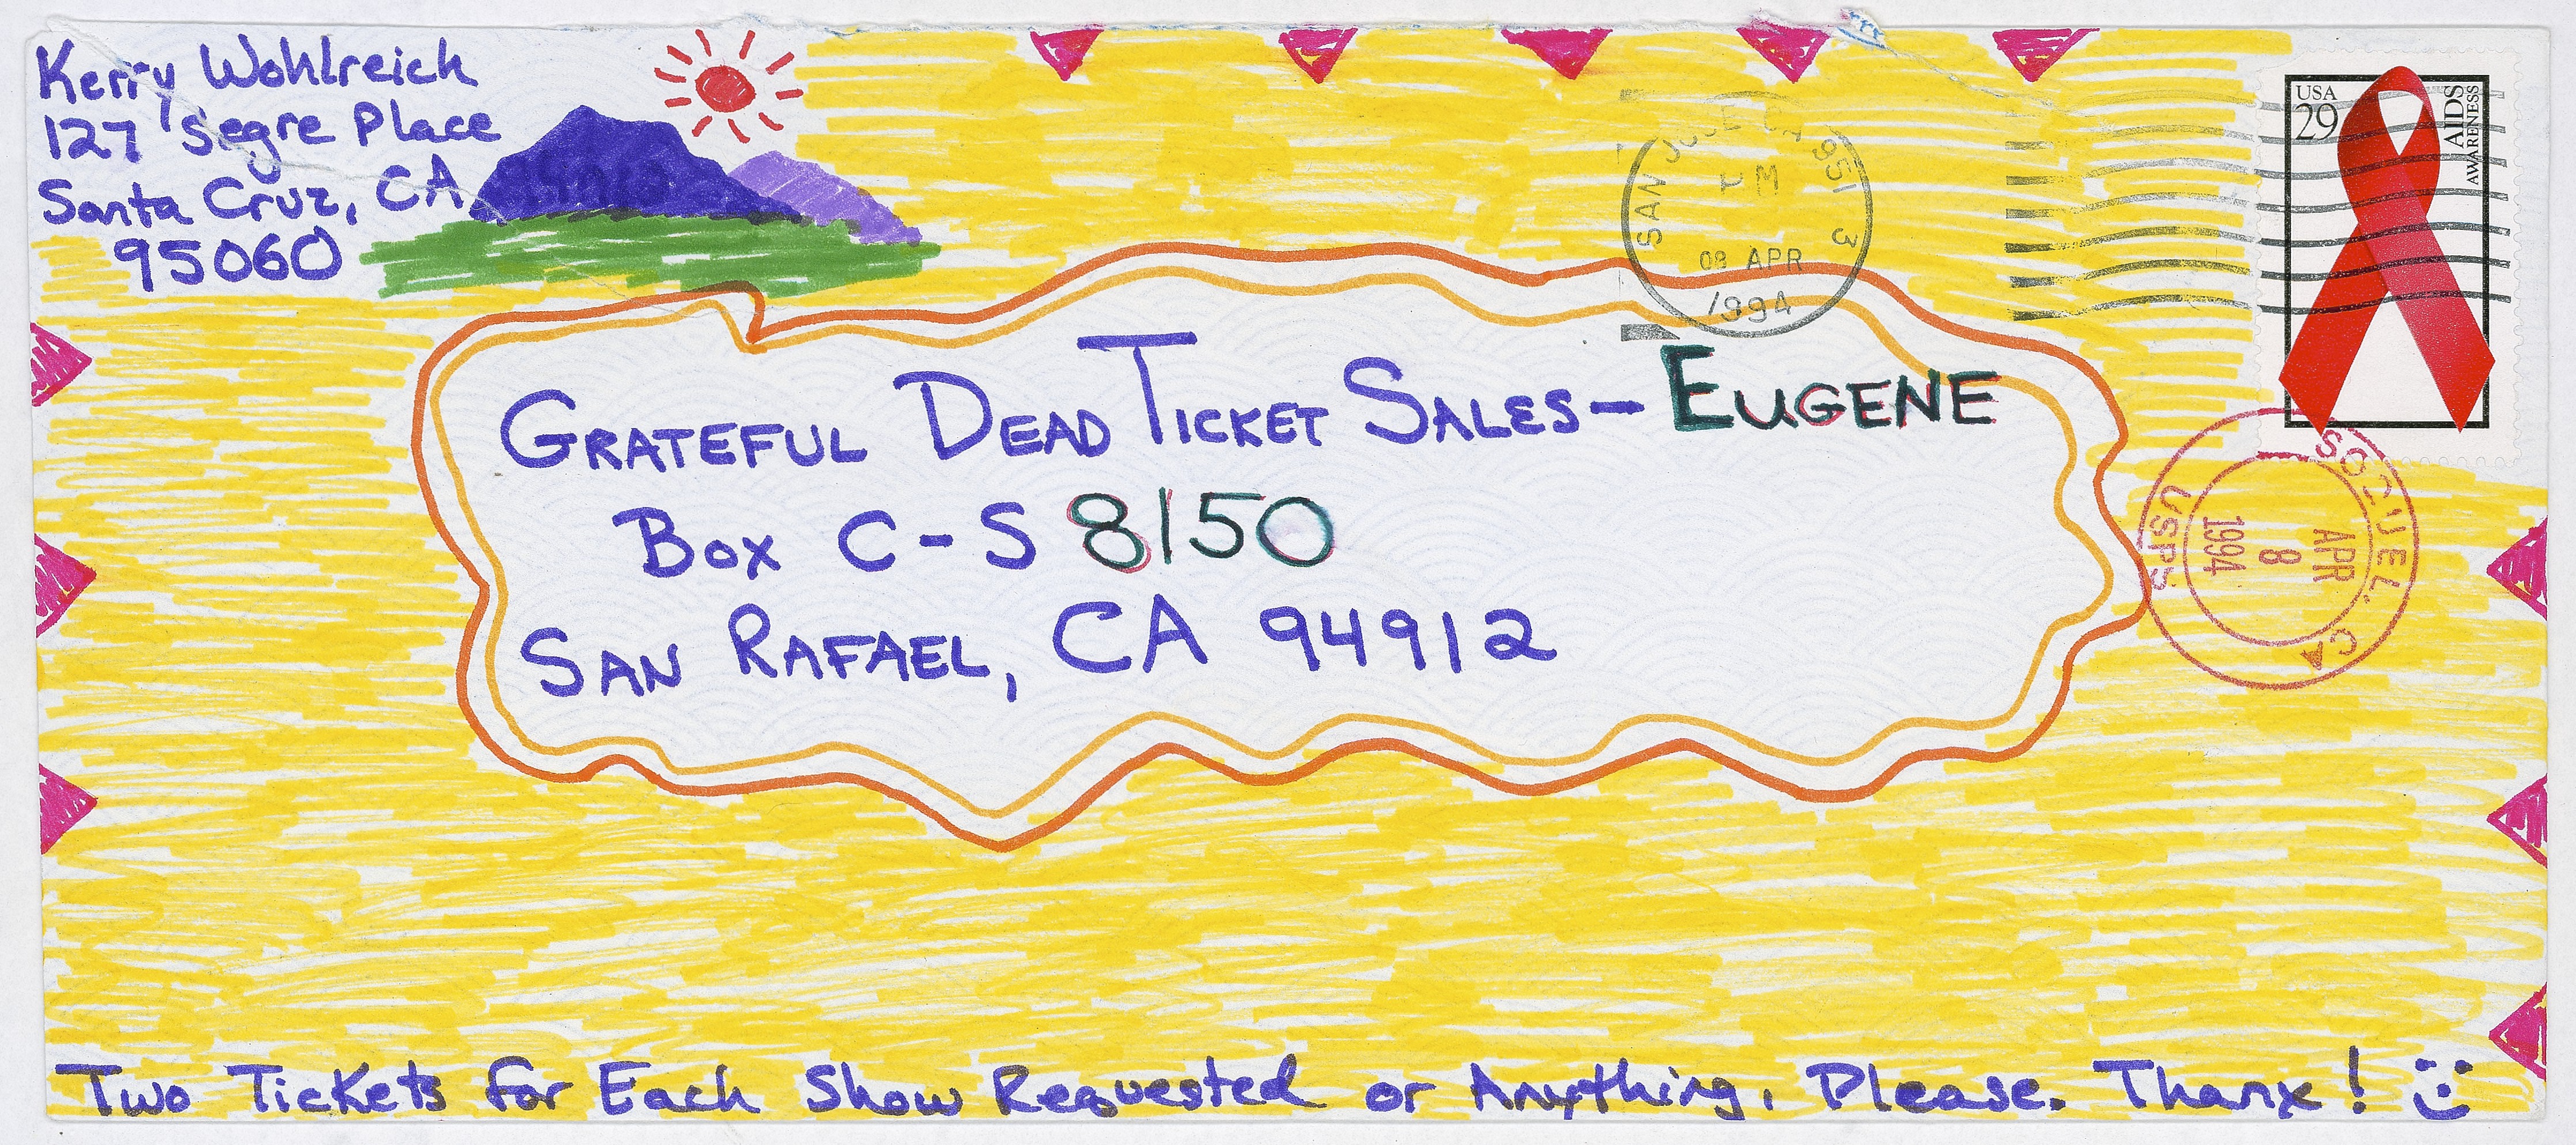 Kerry Wohlreich
127 Segre Place
Santa Cruz, CA
95060
SAN JOSE CA 951 3
PM
08 APR
1994
USA
29
AIDS
AWARENESS
GRATEFUL DEAD TICKET SALES - EUGENE
BOX C-S 8150
SAN RAFAEL, CA 94912
SOQUEL, CA
APR
8
1994
USPS
Two Tickets for Each Show Requested or Anything, Please. Thanx!